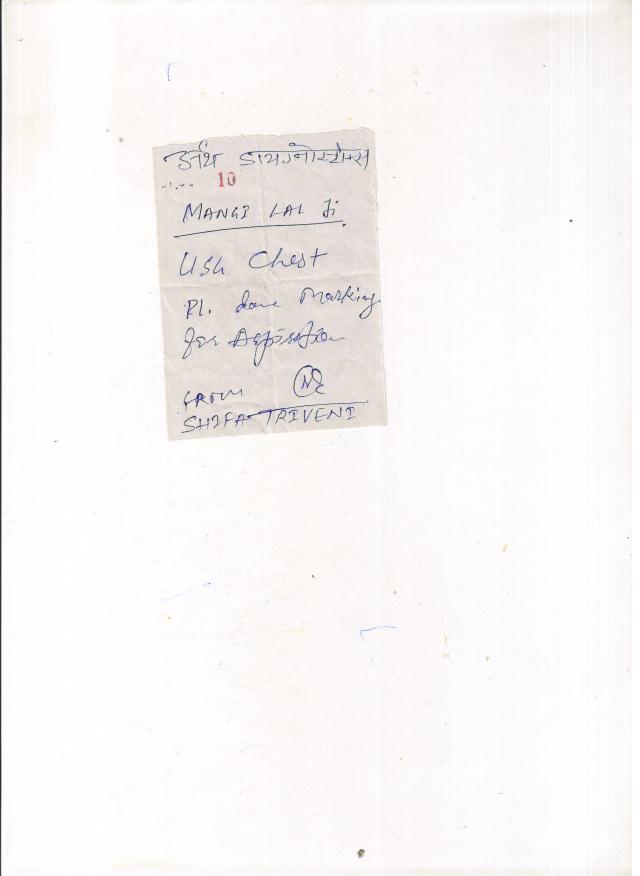 अर्थ डायग्नोस्टिक्स
10
MANGI LAL Ji
USG Chest
Pl. done Marking
for Aspiration
FROM
SHIFA TRIVENI